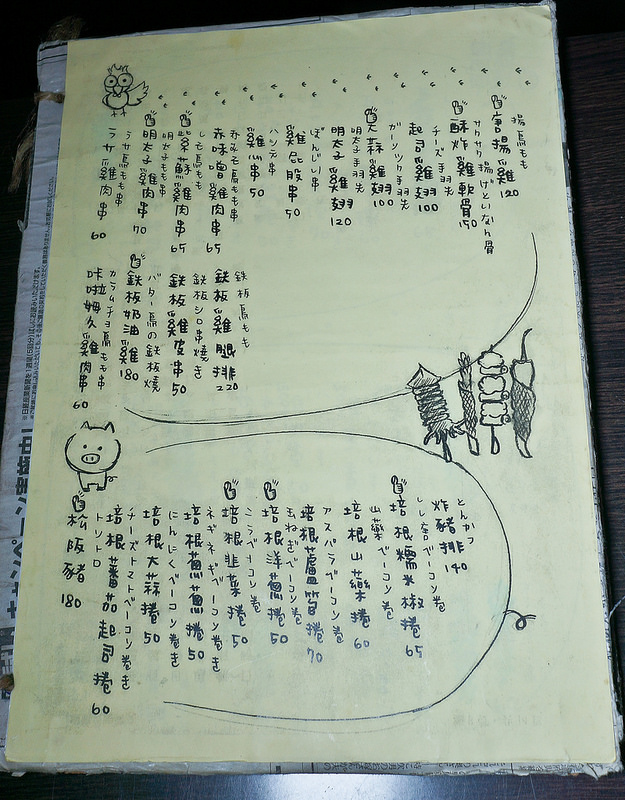 揚鳥もも
唐揚雞 120
サクサク揚げといなん骨
酥炸雞軟骨 150
チーズ手羽先
起司雞翅 100
ガーリック手羽先
大蒜雞翅 100
明太子手羽先
明太子雞翅 120
ぼんじり串
雞屁股串 50
ハツテラ串
雞心串 50
みみそ鳥もも串
味噌雞肉串 65
しそ鳥もも
紫蘇雞肉串 65
明太子もも串
明太子雞肉串 70
うサ鳥もも串
うサ雞肉串 60
鉄板鳥もも
鉄板雞腿排 220
鉄板シロ串焼き
鉄板雞皮串 50
バター鳥の鉄板焼
鉄板奶油雞 180
カラムチョ鳥もも串
咔啦姆久雞肉串 60
とんかつ
炸豬排 140
しし唐ベーコン巻
培根糯米椒捲 65
山藥ベーコン巻
培根山藥捲 60
アスパラベーコン巻
培根蘆筍捲 70
玉ねぎベーコン巻
培根洋蔥捲 50
ニラベーコン巻
培根韭菜捲 50
ネギネギベーコン巻き
培根蔥蔥捲 50
にんにくベーコン巻き
培根大蒜捲 50
チーズトマトベーコン巻き
培根蕃茄起司捲 60
トントロ
松阪豬 180